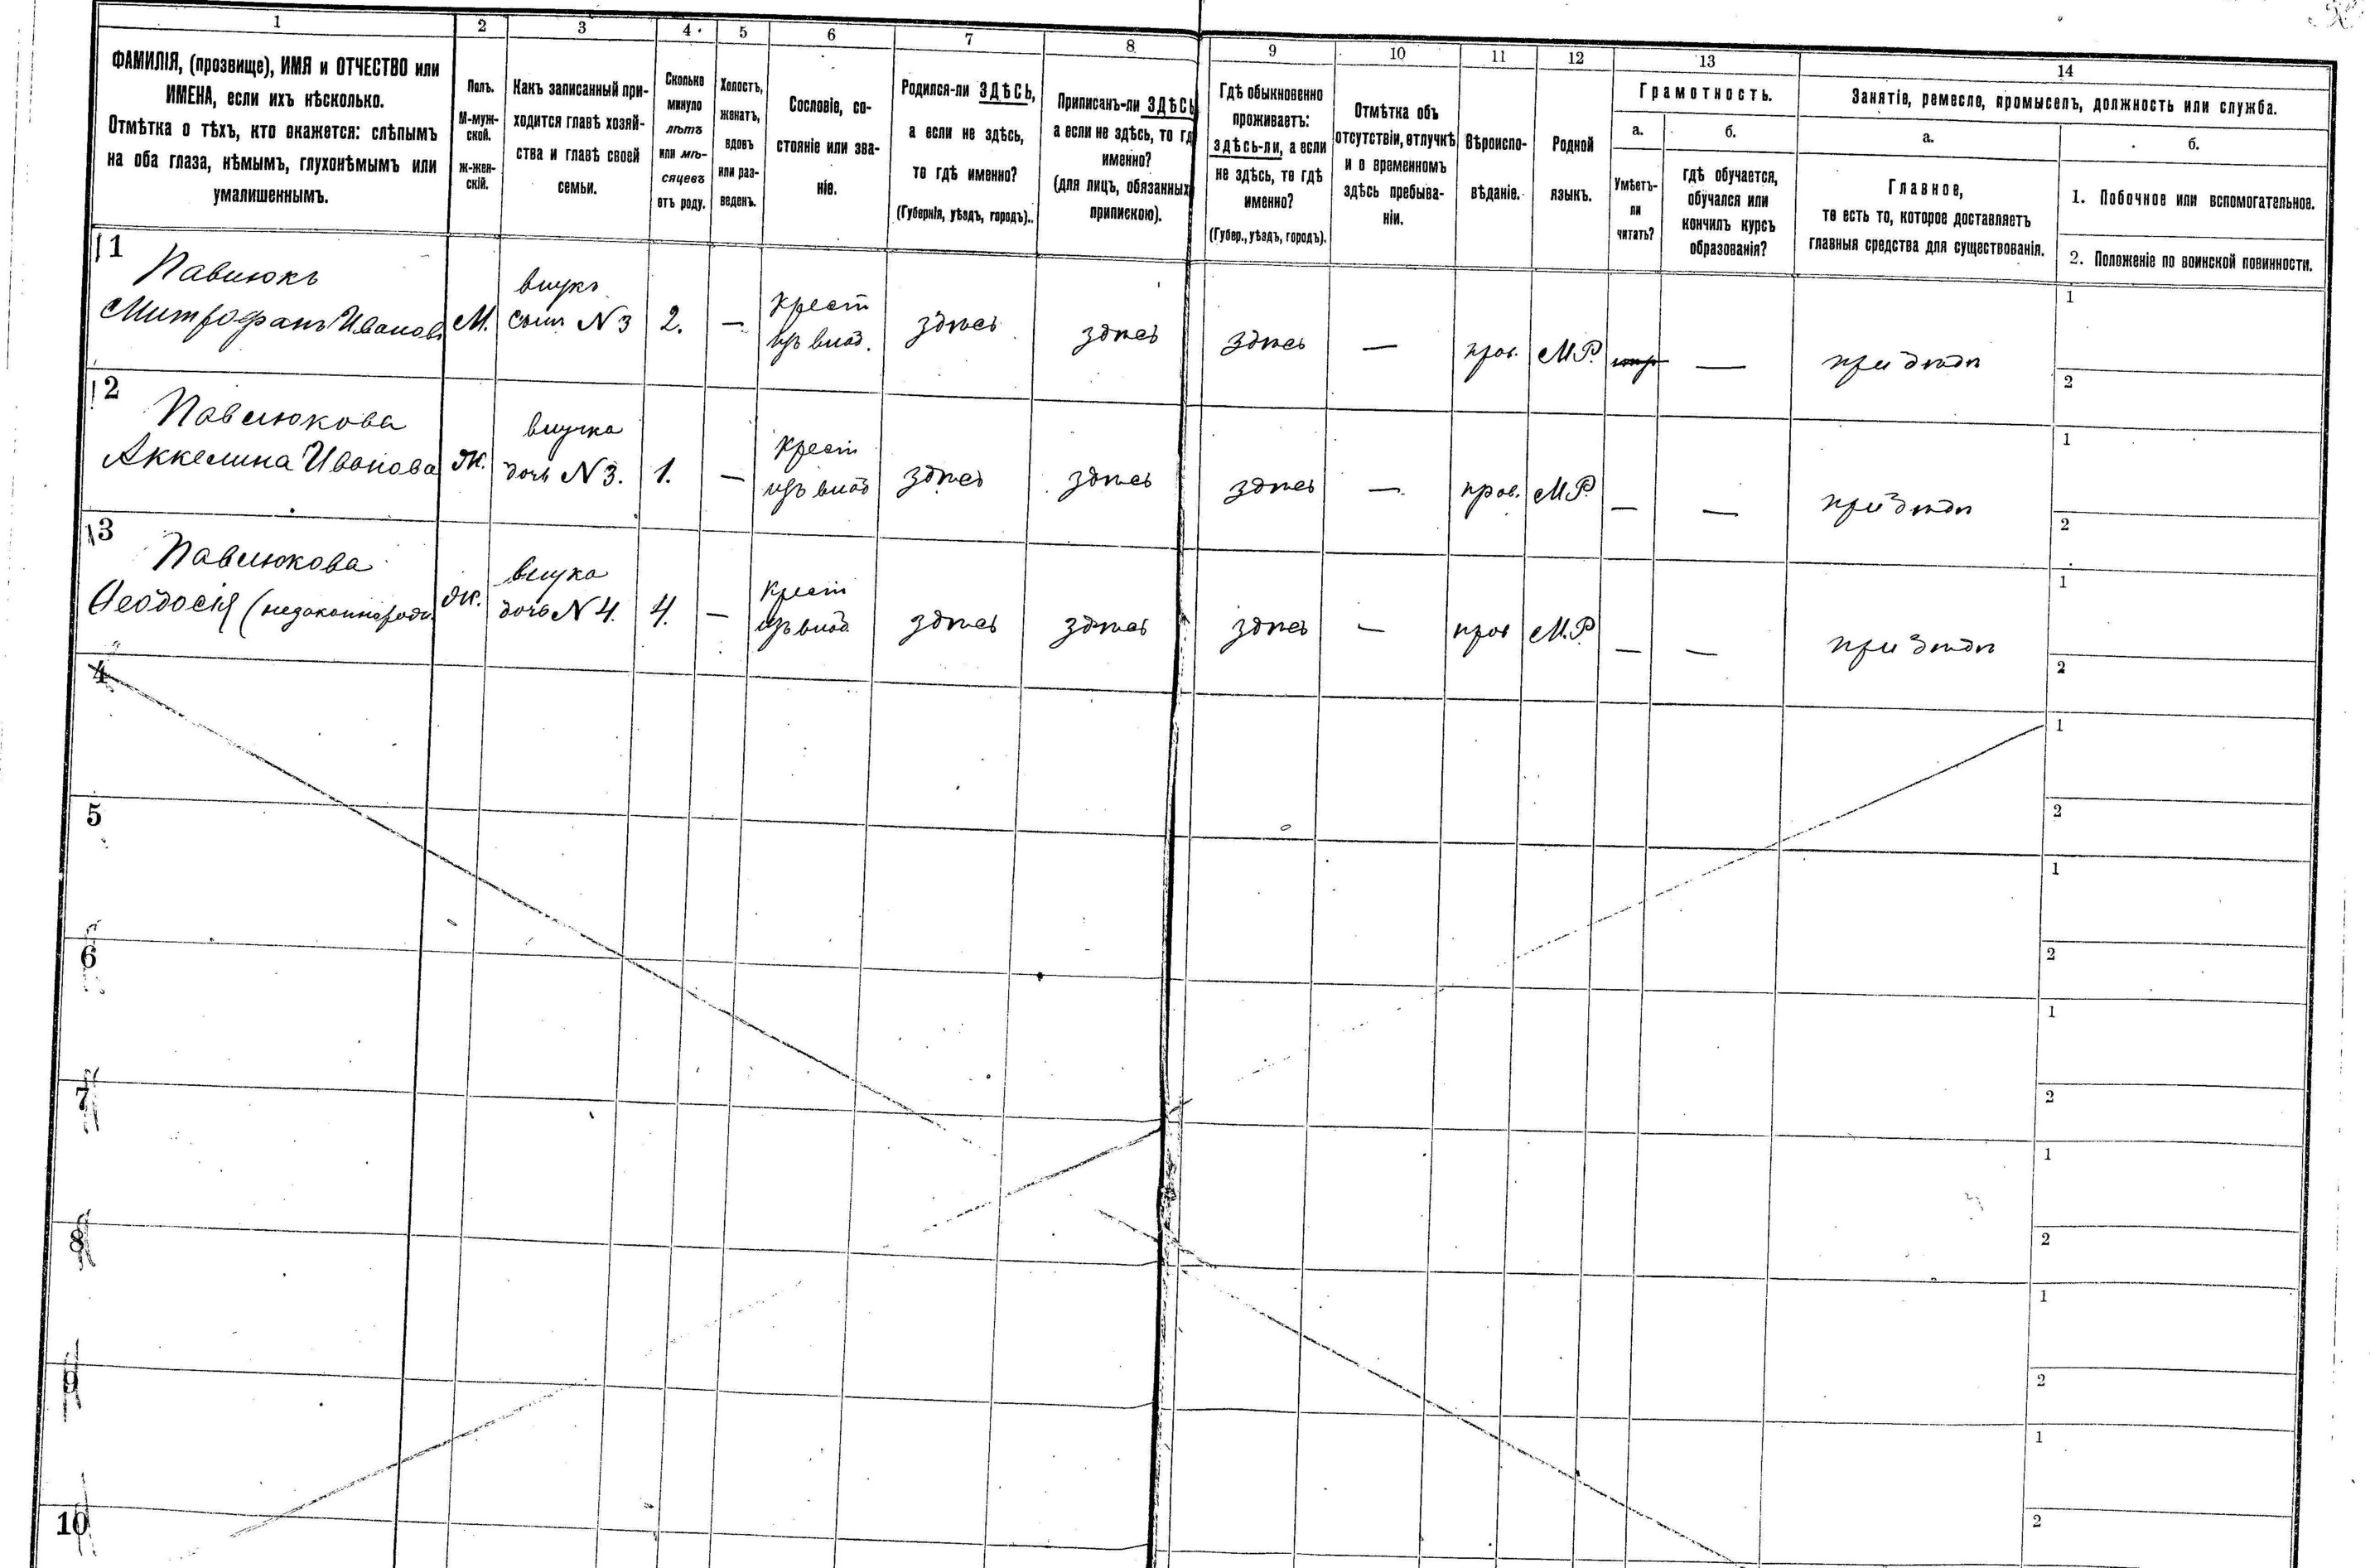 1 2 3 4. 5 6 7 8 9 10 11 12 13 14
ФАМИЛІЯ, (прозвище), ИМЯ и ОТЧЕСТВО или
ИМЕНА, если ихъ нѣсколько.
Отмѣтка о тѣхъ, кто окажется: слѣпымъ
на оба глаза, нѣмымъ, глухонѣмымъ или
умалишеннымъ.
Полъ.
М-муж-
ской.
Ж-жен-
скій.
Какъ записанный при-
ходится главѣ хозяй-
ства и главѣ своей
семьи.
Сколько
минуло
лѣтъ
или мѣ-
сяцевъ
отъ роду.
Холостъ,
женатъ,
вдовъ
или раз-
веденъ.
Сословіе, со-
стояніе или зва-
ніе.
Родился-ли ЗДѢСЬ,
а если не здѣсь,
то гдѣ именно?
(Губернія, уѣздъ, городъ)..
Приписанъ-ли ЗДѢСЬ
а если не здѣсь, то гд
именно?
(для лицъ, обязанных
припискою).
Гдѣ обыкновенно
проживаетъ:
здѣсь-ли, а если
не здѣсь, то гдѣ
именно?
(Губер., уѣздъ, городъ).
Отмѣтка объ
отсутствіи, отлучкѣ
и о временномъ
здѣсь пребыва-
ніи.
Вѣроиспо-
вѣданіе.
Родной
языкъ.
Грамотность.
а.
Умѣетъ-
ли
читать?
б.
гдѣ обучается,
обучался или
кончилъ курсъ
образованія?
Занятіе, ремесло, промыселъ, должность или служба.
а.
Главное,
то есть то, которое доставляетъ
главныя средства для существованія.
б.
1. Побочное или вспомогательное.
2. Положеніе по воинской повинности.
1
Павлюкъ
Митрофанъ Ивановъ
М.
внукъ
сынъ N 3
2.
—
Крест
изъ влад.
здѣсь
здѣсь
здѣсь
—
прав.
М.Р.
—
при дѣдѣ
1
2
2
Павлюкова
Аккелина Иванова
Ж.
внучка
дочь N 3.
1.
—
Крест
изъ влад
здѣсь
здѣсь
здѣсь
—.
прав.
М.Р.
—
—
при дѣдѣ
1
2
3
Павлюкова
Ѳеодосія (незаконнорожд.
Ж.
внука
дочь N 4.
4.
—
Крест
изъ влад.
здѣсь
здѣсь
здѣсь
—
прав
М.Р.
—
—
при дѣдѣ
1
2
4
1
2
5
1
2
6
1
2
7
1
2
8
1
2
9
1
2
10